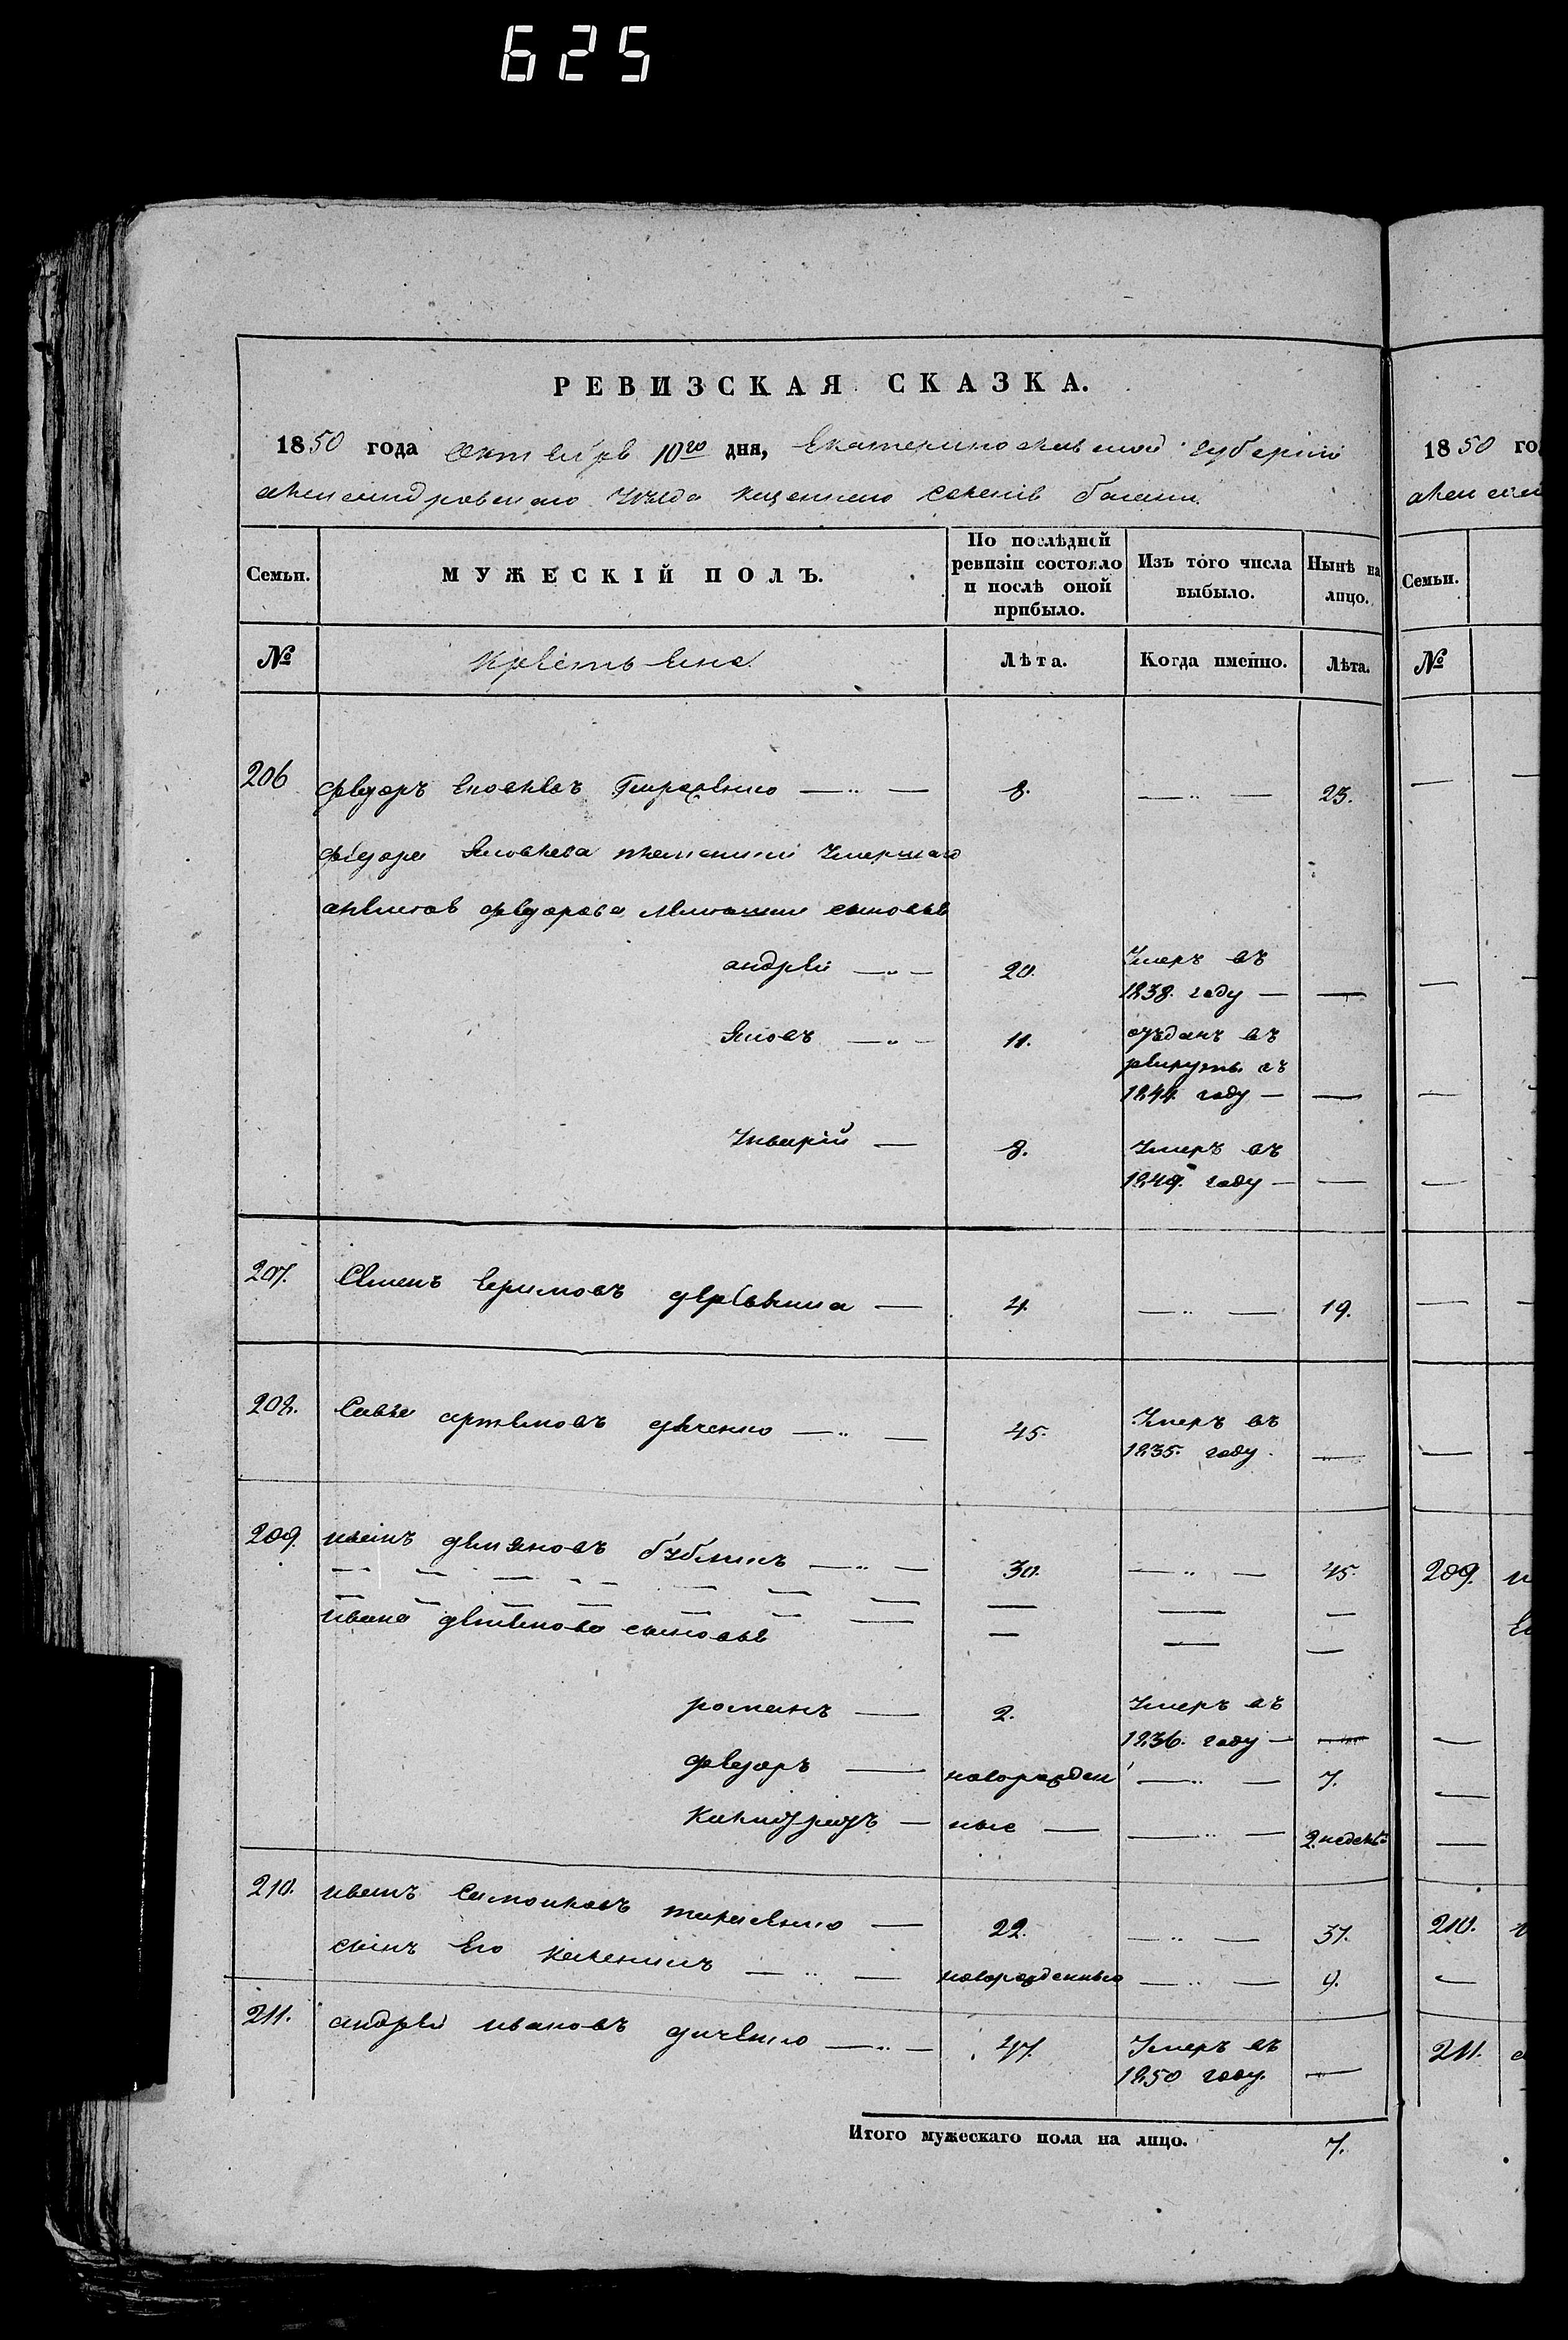 625
РЕВИЗСКАЯ СКАЗКА.
1850 года октебре 10го дня, Екатериносклвской губерніи
алексендровскаго уѣзда казеннаго селеніе
Семьи.
МУЖЕСКІЙ ПОЛЪ.
По послѣдней ревизіи состояло и послѣ оной прибыло.
Изъ того числа выбыло.
Нынѣ на лицо.
№
Крестьене
Лѣта.
Когда именно.
Лѣта.
206 федоръ Яковлевъ 8. — 23.
федора Яковлева племеники умершаго
алексея федорова сыновье
андрей — 20. Умеръ въ 1838. году —
Яковъ — 11. отъданъ въ рекруты въ 1844. году —
Укварій — 8. Умеръ въ 1849. году —
207. Семенъ Ефимовъ — 4. — 19.
208. Савва артемовъ — 45. Умеръ въ 1835. году.
209. иванъ демяновъ бубликъ — 30. — 45.
ивана демьянова сыновье
романъ — 2. Умеръ въ 1836. году —
федоръ — новорожден — 7.
— ные — 2. недель
210. иванъ тарасенко — 22. — 37.
сынъ его — новорожденные — 9.
211. андрей ивановъ дяченко — 47. Умеръ въ 1850 году. —
Итого мужескаго пола на лицо. 7.
1850 го
Семьи.
№
209.
210.
211.